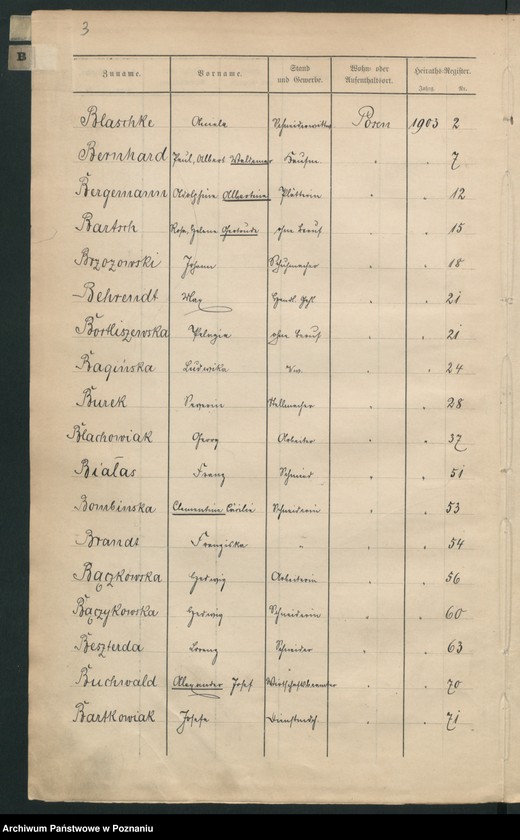 3
B
Zuname. Vorname. Stand und Gewerbe. Wohn- oder Aufenthaltsort. Heiraths-Register.
Jahrg. No.
Blaschke Amala Schneiderwittwe Posen 1903 2
Bernhard Paul, Albert Waldemar Kaufm. " " 7
Bergemann Adolphine Albertine Plätterin " " 12
Bartsch Rosa, Helene Gertrude ohne Beruf " " 15
Brzozowski Johann Schuhmacher " " 18
Behrendt Max Handl. Geh. " " 21
Bortliszewska Pelagia ohne Beruf " " 21
Bagińska Ludwika " " 24
Burek Severin Stellmacher " " 28
Blachowiak Georg Arbeiter " " 37
Białas Franz Schmied " " 51
Bombińska Clementine Cäcilie Schneiderin " " 53
Brandt Franziska " " " 54
Bączkowska Hedwig Arbeiterin " " 56
Bączykowska Hedwig Schneiderin " " 60
Beszterda Lorenz Schneider " " 63
Buchwald Alexander Josef Wirtschaftsbeamter " " 70
Bartkowiak Josefa Dienstmdch " " 71
Archiwum Państwowe w Poznaniu